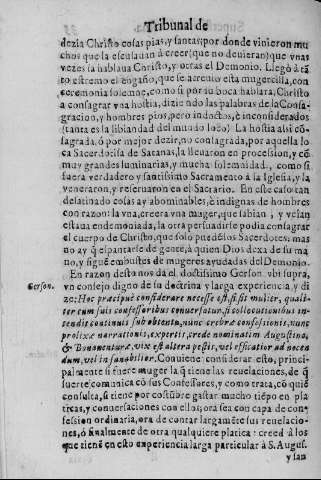 Tribunal de
dezia Christo cosas pias, y santas; por donde vinieron mu
chos que la escuchauan à creer (que no deuieran) que vnas
vezes la hablaua Christo, y otras el Demonio. Llegò à tã
to estremo el engaño, que se atreuio esta mugercilla, con
ceremonia solemne, como si por su boca hablara, Christo
a consagrar vna hostia, diziendo las palabras de la Consa-
gracion, y hombres pios, pero indoctos, è inconsiderados
(tanta es la liuiandad del mundo loco) La hostia assi cõ-
sagrada, ó por mejor dezir, no consagrada, por aquella lo
ca Sacerdotisa de Satanas, la lleuaron en procession, y cõ
muy grandes luminarias, y mucha solemnidad, como si
fuera verdadero y santissimo Sacramento à la Iglesia, y la
veneraron, y reseruaron en el Sacrario. En este caso tan
desatinado cosas ay abominables, è indignas de hombres
con razon: la vna, creer a vna muger, que sabian, y vesan
estaua endemoniada, la otra persuadirse podia consagrar
el cuerpo de Christo, que solo pueden los Sacerdotes, mas
no ay q̃ espantarse de gente, à quien Dios dexa de su ma
no, y sigue embustes de mugeres ayudadas del Demonio.
En razon desto nos da el doctissimo Gerson. vbi supra,
Gerson. vn consejo digno de su doctrina y larga experiencia, y di
ze: Hoc præcipuè considerare necesse est, si sit mulier, quali-
ter cum suis confessoribus conuersatur, si collocutionibus in-
tendit continuis sub obtentu, nunc crebræ confessionis, nunc
prolixæ narrationis, expertis, crede nominatim Augustino,
& Bonauenturæ, vix est altera pestis, vel efficatior ad nocẽ
dum, vel insanabilior. Conuiene considerar esto, princi-
palmente si fuere muger la q̃ tiene las reuelaciones, de q̃
suerte comunica cõ sus Confessores, y como trata, cõ quiẽ
consulta, si tiene por costũbre gastar mucho tiẽpo en pla
ticas, y conuersaciones con ellos; ora sea con capa de con-
fession ordinaria, ora de contar largamẽte sus reuelacio-
nes, ó finalmente de otra qualquiere platica: creed à los
que tienẽ en esto experiencia larga particular à S. Augus.
y san